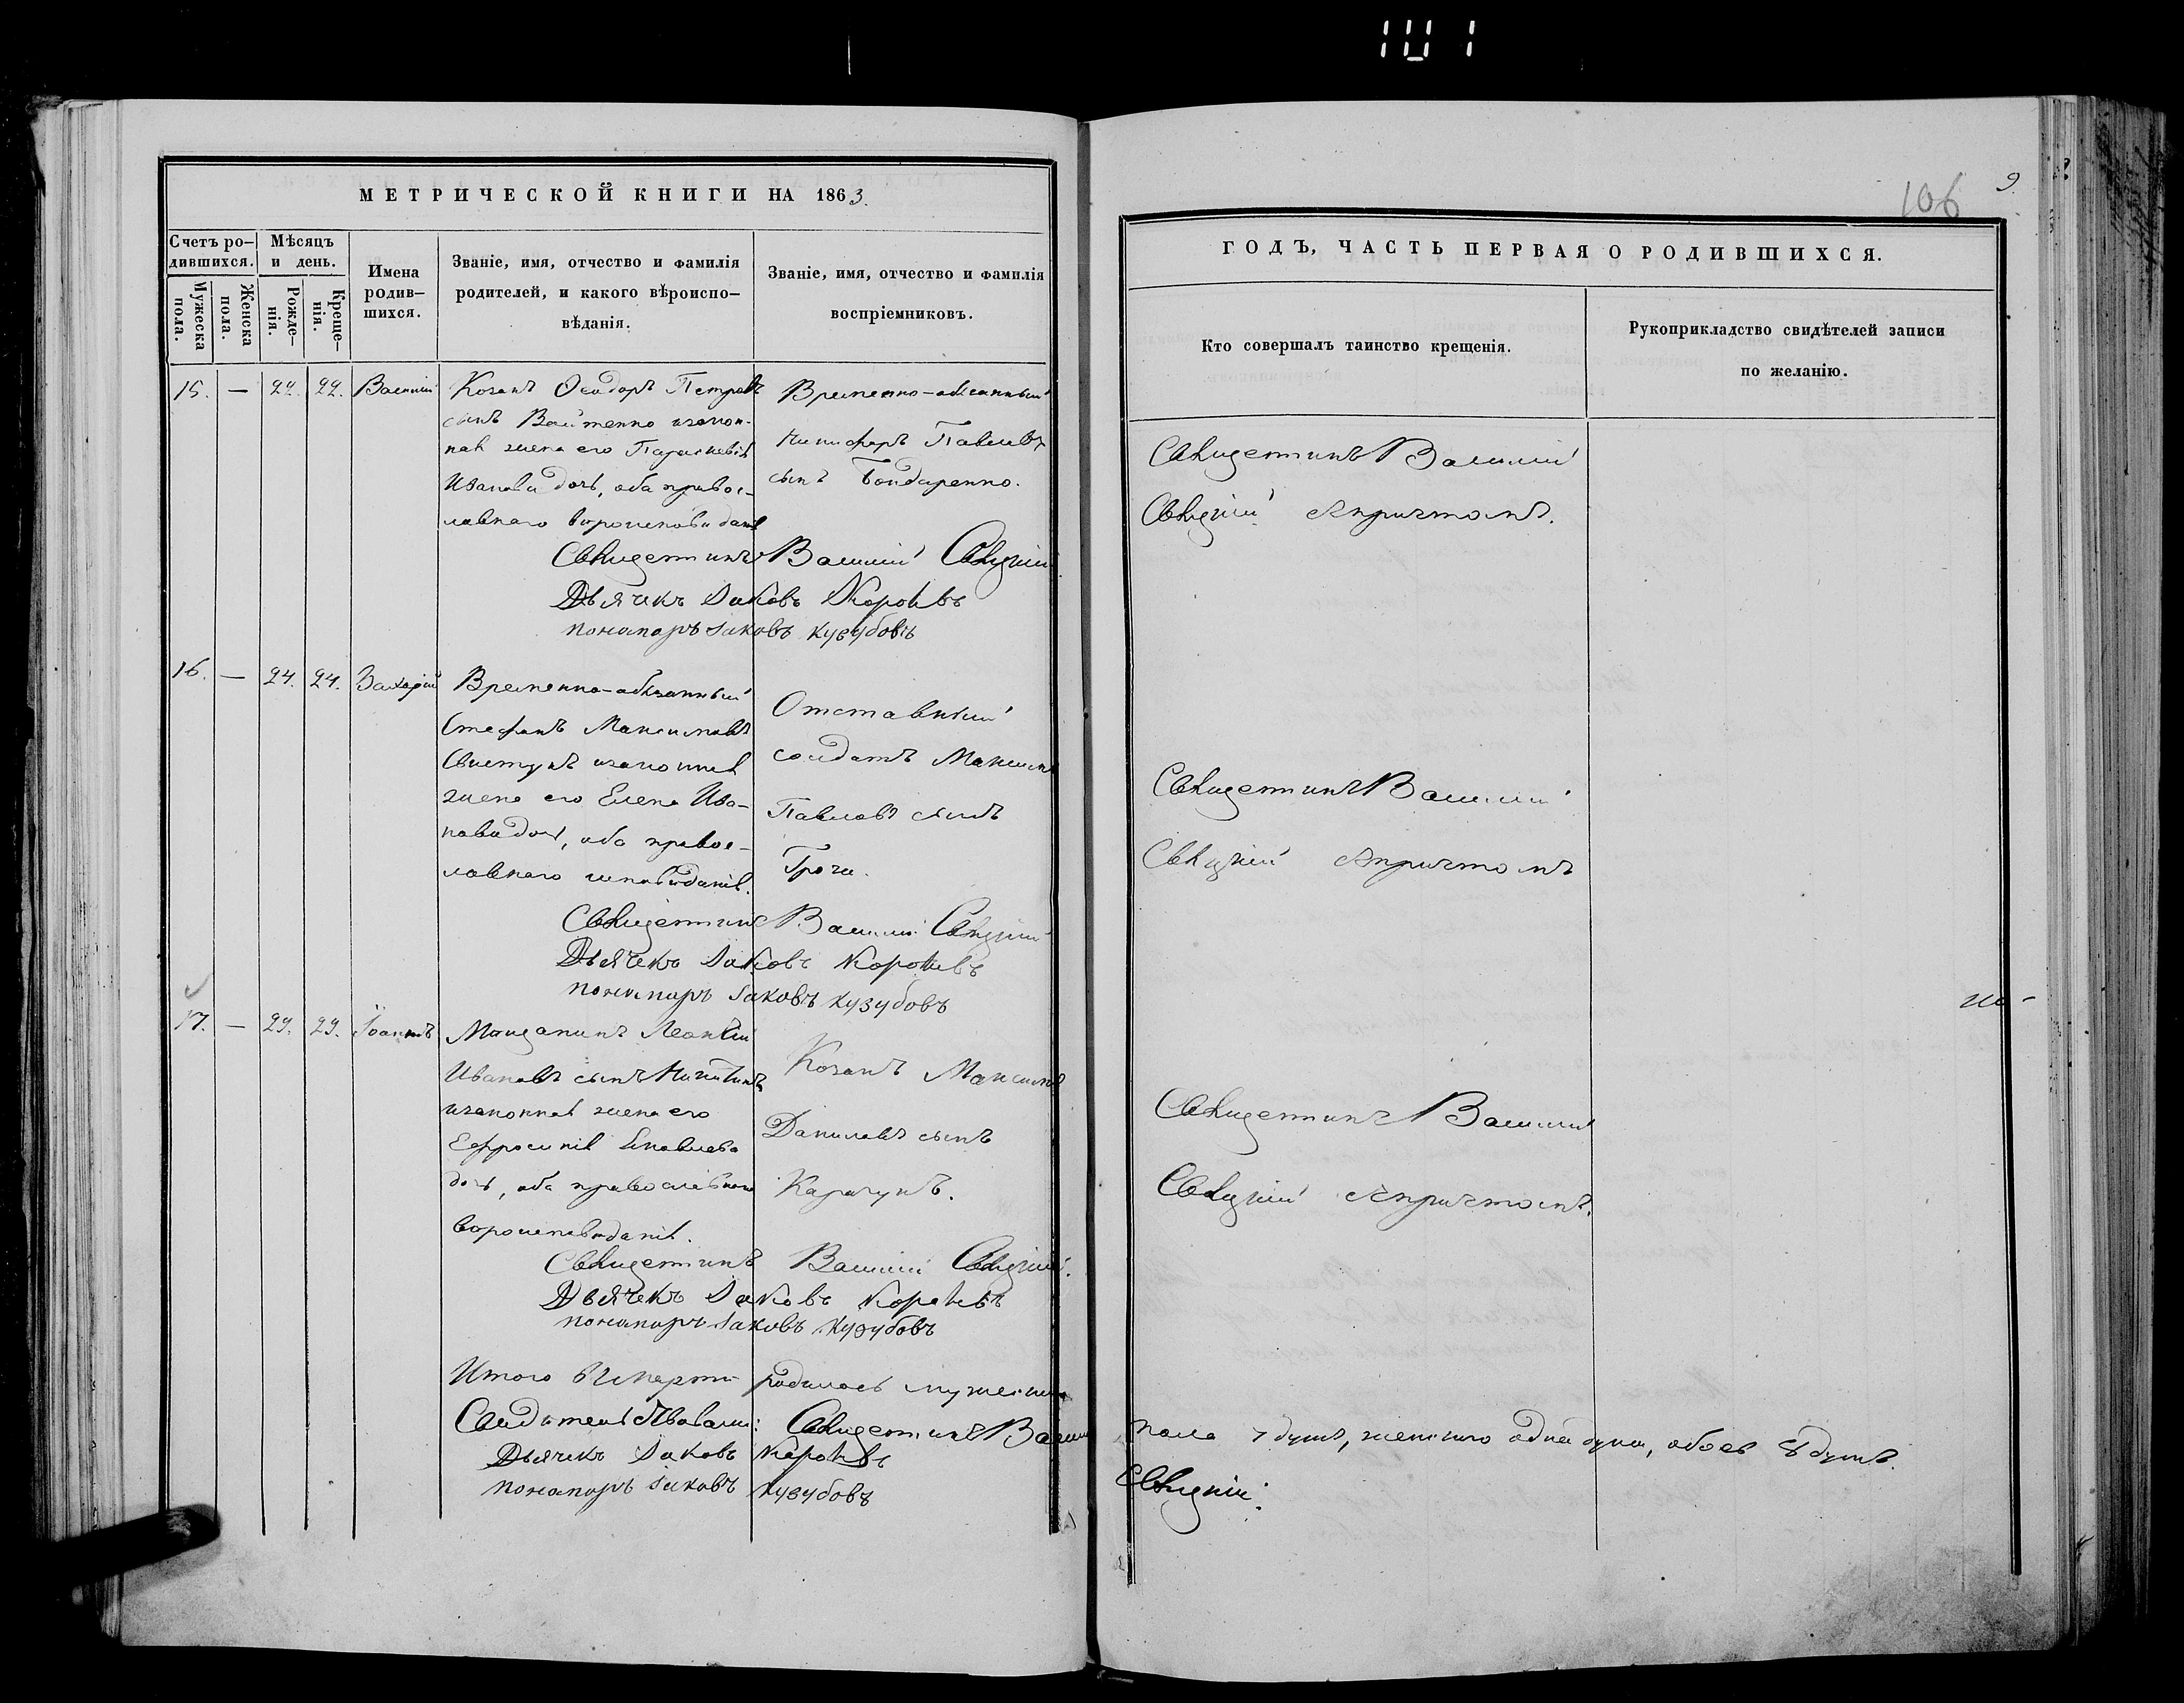 101
МЕТРИЧЕСКОЙ КНИГИ НА 1863.
Счетъ ро-
дившихся.
Мужеска
пола.
Женска
пола.
Мѣсяцъ
и день.
Рожде-
нія.
Креще-
нія.
Имена
родив-
шихся.
Званіе, имя, отчество и фамилія
родителей, и какого вѣроиспо-
вѣданія.
Званіе, имя, отчество и фамилія
воспріемниковъ.
15. — 22. 22. Василій
Козакъ Ѳеодоръ Петровъ
сынъ Войтенко и закон-
ная жена его Параскевія
Иванова дочь, оба правос-
лавнаго вѣроисповѣданія
Временно-обязанный
Никифоръ Павловъ
сынъ Бондаренко.
Священникъ Василій
Дьячекъ Іаковъ
Пономарь Іаковъ Кузубовъ
16. — 24. 24. Захарій
Временно-обязанный
Стефанъ Максимовъ
Свистунъ и законная
жена его Елена Ива-
нова дочь, оба правос-
лавнаго исповѣданія.
Отставный
солдатъ Максимъ
Павловъ сынъ
Священникъ Василій
Дьячекъ Іаковъ
Пономарь Іаковъ Кузубовъ
17. — 29. 29. Іоаннъ
Мѣщанинъ Леонтій
Ивановъ сынъ Никитинъ
и законная жена его
Ефросинія Яковлева
дочь, оба православнаго
вѣроисповѣданія.
Козакъ Максимъ
Даниловъ сынъ
Карачунъ.
Священникъ Василій
Дьячекъ Іаковъ
Пономарь Іаковъ Кузубовъ
Итого въ Мартѣ родилось мужеска
Свидѣтельствовали: Священникъ Василій
Дьячекъ Іаковъ
Пономарь Іаковъ Кузубовъ
106 9.
ГОДЪ, ЧАСТЬ ПЕРВАЯ О РОДИВШИХСЯ.
Кто совершалъ таинство крещенія.
Рукоприкладство свидѣтелей записи
по желанію.
Священникъ Василій
съ причтомъ.
Священникъ Василій
съ причтомъ
Священникъ Василій
съ причтомъ.
пола 7 душъ, женскаго одна душа, обоего 8 душъ.